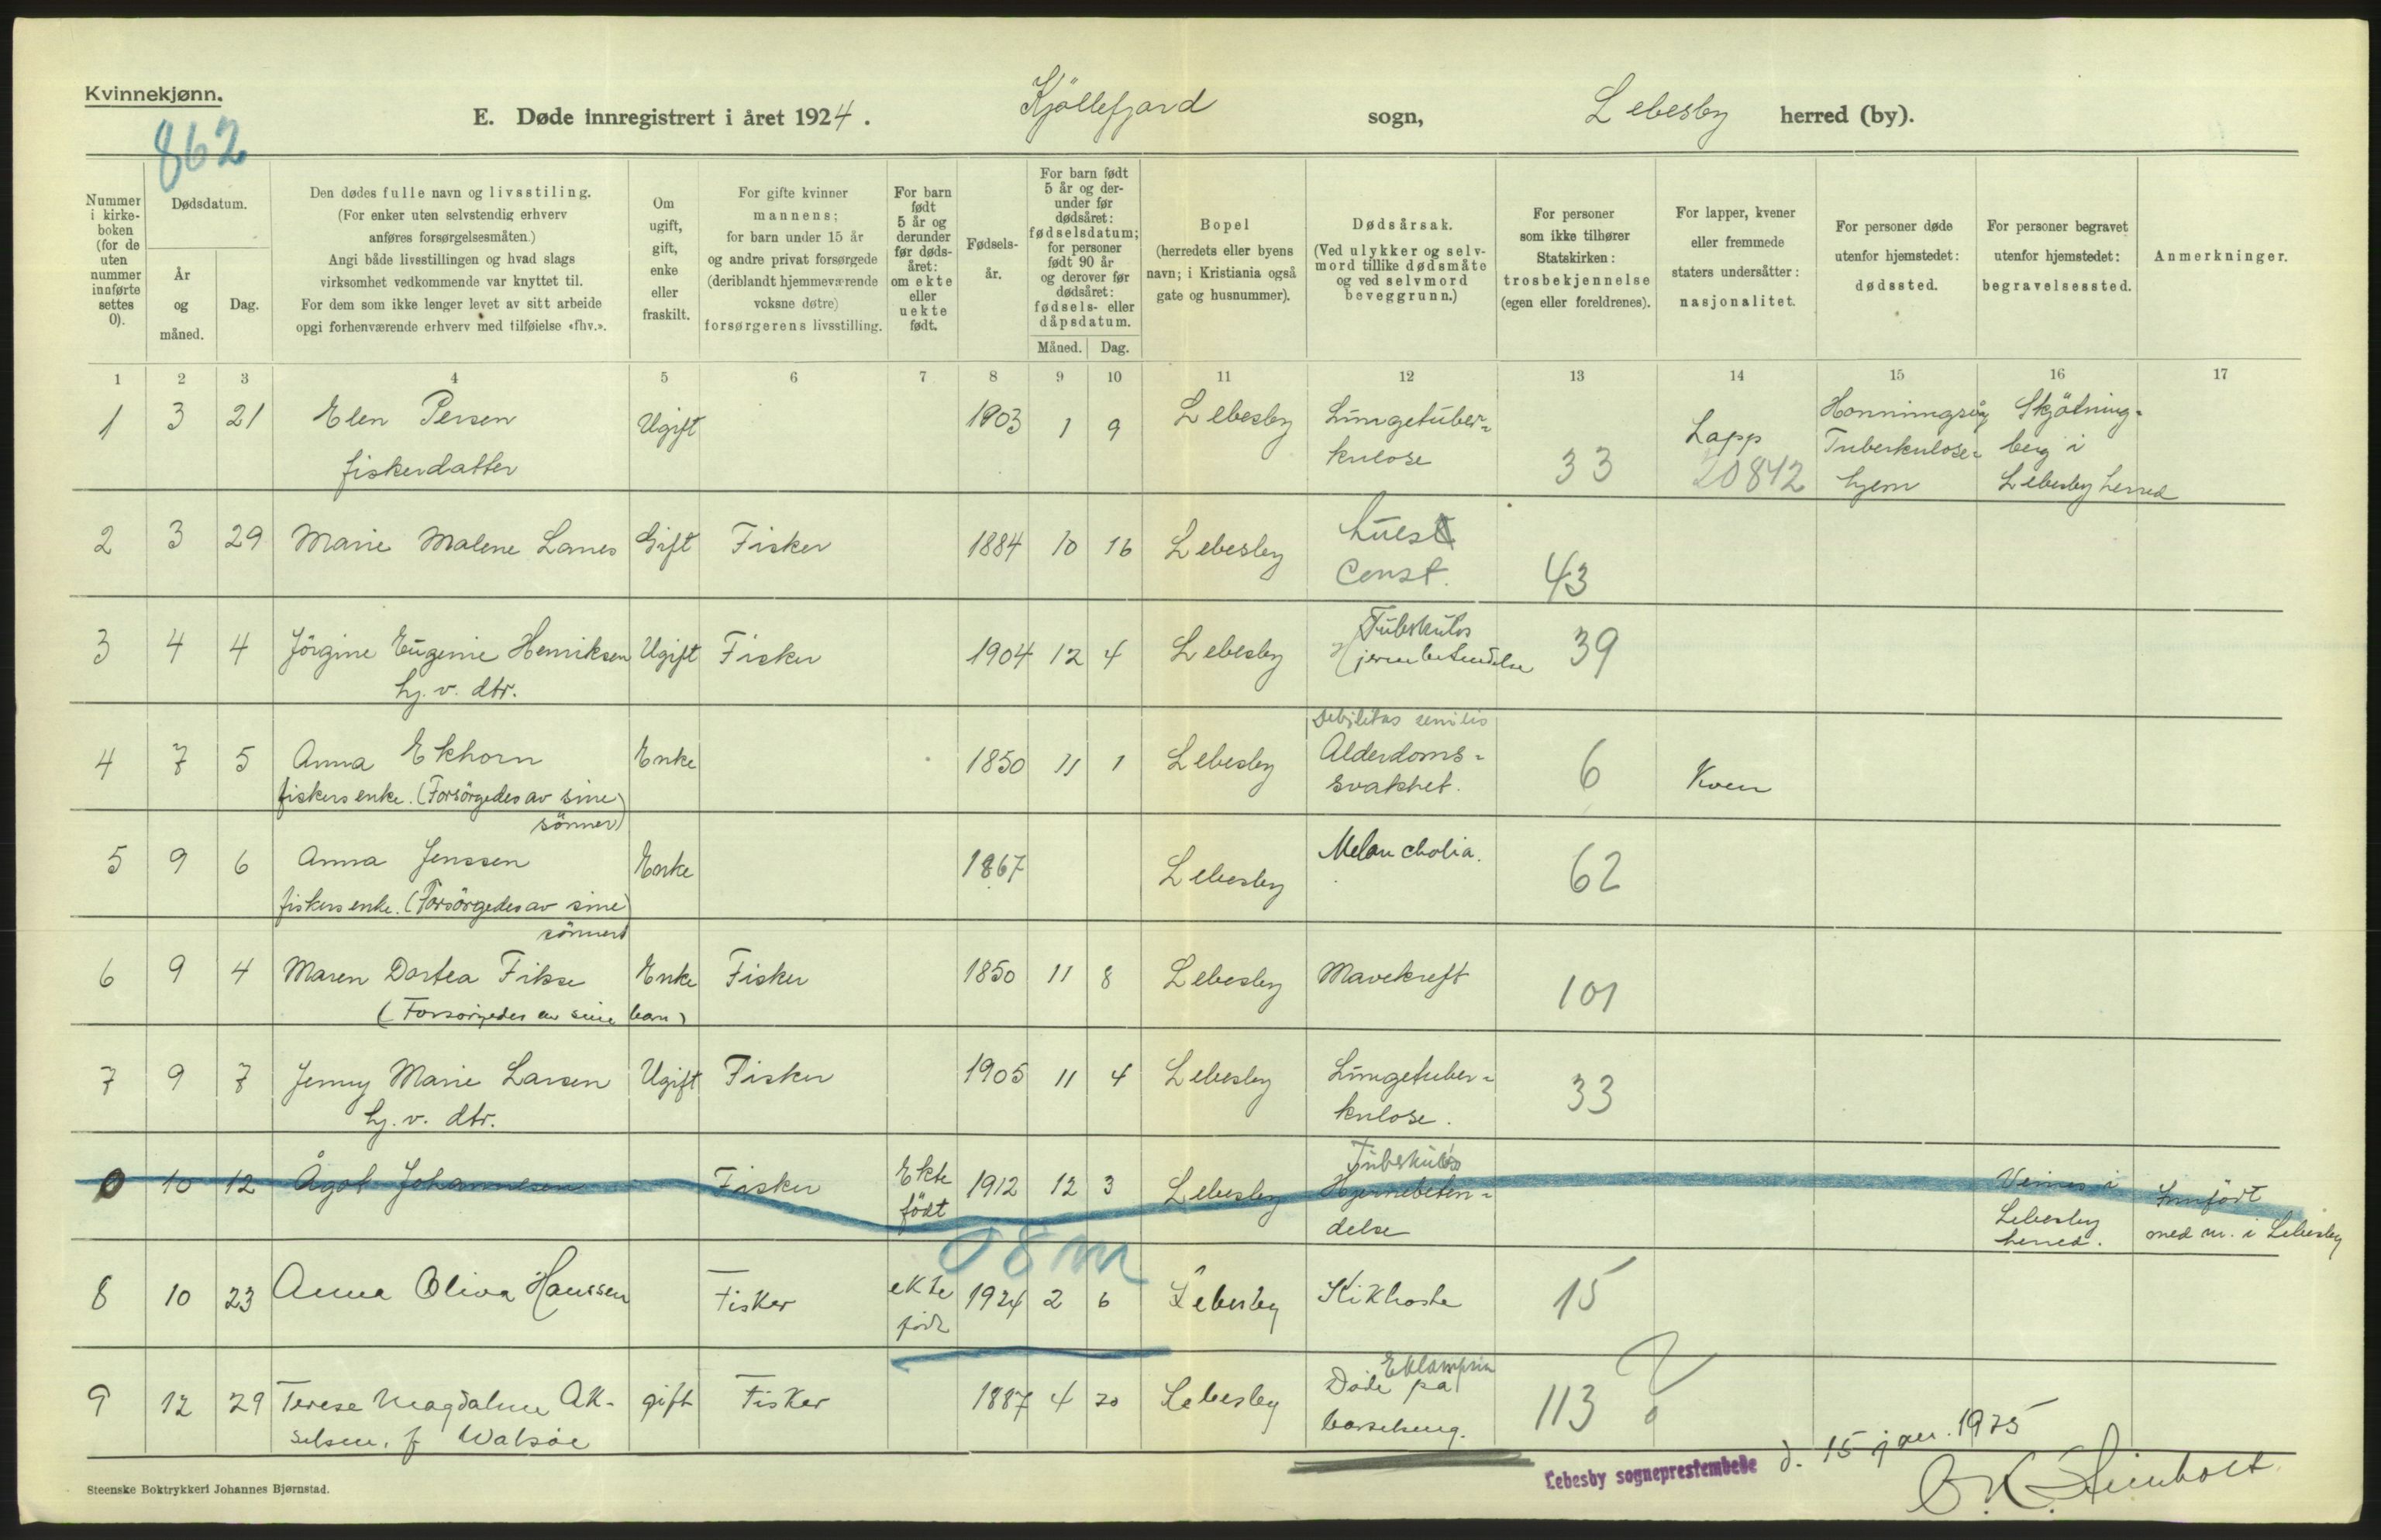 Kvinnekjønn.
862
E. Døde innregistrert i året 1924. Kjöllefjord sogn, Lebesby herred (by).
Nummer i kirke- boken (for de uten nummer innførte settes 0).
Dødsdatum.
År og måned.
Dag.
Den dødes fulle navn og livsstilling.
(For enker uten selvstendig erhverv
anføres forsørgelsesmåten.)
Angi både livsstillingen og hvad slags
virksomhet vedkommende var knyttet til.
For dem som ikke lenger levet av sitt arbeide
opgi forhenværende erhverv med tilføielse «fhv.».
Om ugift, gift, enke eller fraskilt.
For gifte kvinner
mannens;
for barn under 15 år
og andre privat forsørgede
(deriblandt hjemmeværende
voksne døtre)
forsørgerens livsstilling.
For barn født 5 år og derunder før døds- året: om ekte eller uekte født.
Fødsels- år.
For barn født 5 år og der- under før dødsåret: fødselsdatum; for personer født 90 år og derover før dødsåret: fødsels- eller dåpsdatum.
Måned. Dag.
Bopel
(herredets eller byens
navn; i Kristiania også
gate og husnummer).
Dødsårsak.
(Ved ulykker og selv-
mord tillike dødsmåte
og ved selvmord
beveggrunn.)
For personer
som ikke tilhører
Statskirken:
trosbekjennelse
(egen eller foreldrenes).
For lapper, kvener
eller fremmede
staters undersåtter:
nasjonalitet.
For personer døde
utenfor hjemstedet:
dødssted.
For personer begravet
utenfor hjemstedet:
begravelsessted.
Anmerkninger.
1 2 3 4 5 6 7 8 9 10 11 12 13 14 15 16 17
1 3 21 Elen Persen Ugift 1903 1 9 Lebesby Lungetuber= Lapp Honningsvåg Skjötning=
fiskerdatter kulose 33 20842 Tuberkulose= berg i
hjem Lebesby herred
2 3 29 Marie Malene Lanes Gift Fisker 1884 10 16 Lebesby Lues
Const. 43
3 4 4 Jörgine Eugenie Henriksen Ugift Fisker 1904 12 4 Lebesby Tuberkuløs 39
hj. v. dtr. Hjernebetendelse
debilitas senilis
4 7 5 Anna Ekhorn Enke 1850 11 1 Lebesby Alderdoms= 6 Kven
fiskers enke. (Forsörgedes av sine svakhet.
sönner)
5 9 6 Anna Jenssen Enke 1867 Lebesby Melancholia. 62
fiskers enke. (Forsörgedes av sine
sönner)
6 9 4 Maren Dortea Fikse Enke Fisker 1850 11 8 Lebesby Mavekreft 101
(Forsörgedes av sine barn)
7 9 7 Jenny Marie Larsen Ugift Fisker 1905 11 4 Lebesby Lungetuber= 33
hj. v. dtr. kulose.
Tuberkuløs
0 10 12 Ågot Johannesen Fisker Ekte födt 1912 12 3 Lebesby Hjernebeten= i Innfört
delse Lebesby herred. med nr. i Lebesby
08m
8 10 23 Anna Oliva Hanssen Fisker ekte født 1924 2 6 Lebesby Kikhoste 15
Eklampsia
9 12 29 Terese Magdalene Ak- gift Fisker 1887 4 20 Lebesby Døde på 113 ?
selsen. f Walsøe barselseng.
Lebesby sogneprestembede d. 15 jan. 1925
Steenske Boktrykkeri Johannes Bjørnstad.